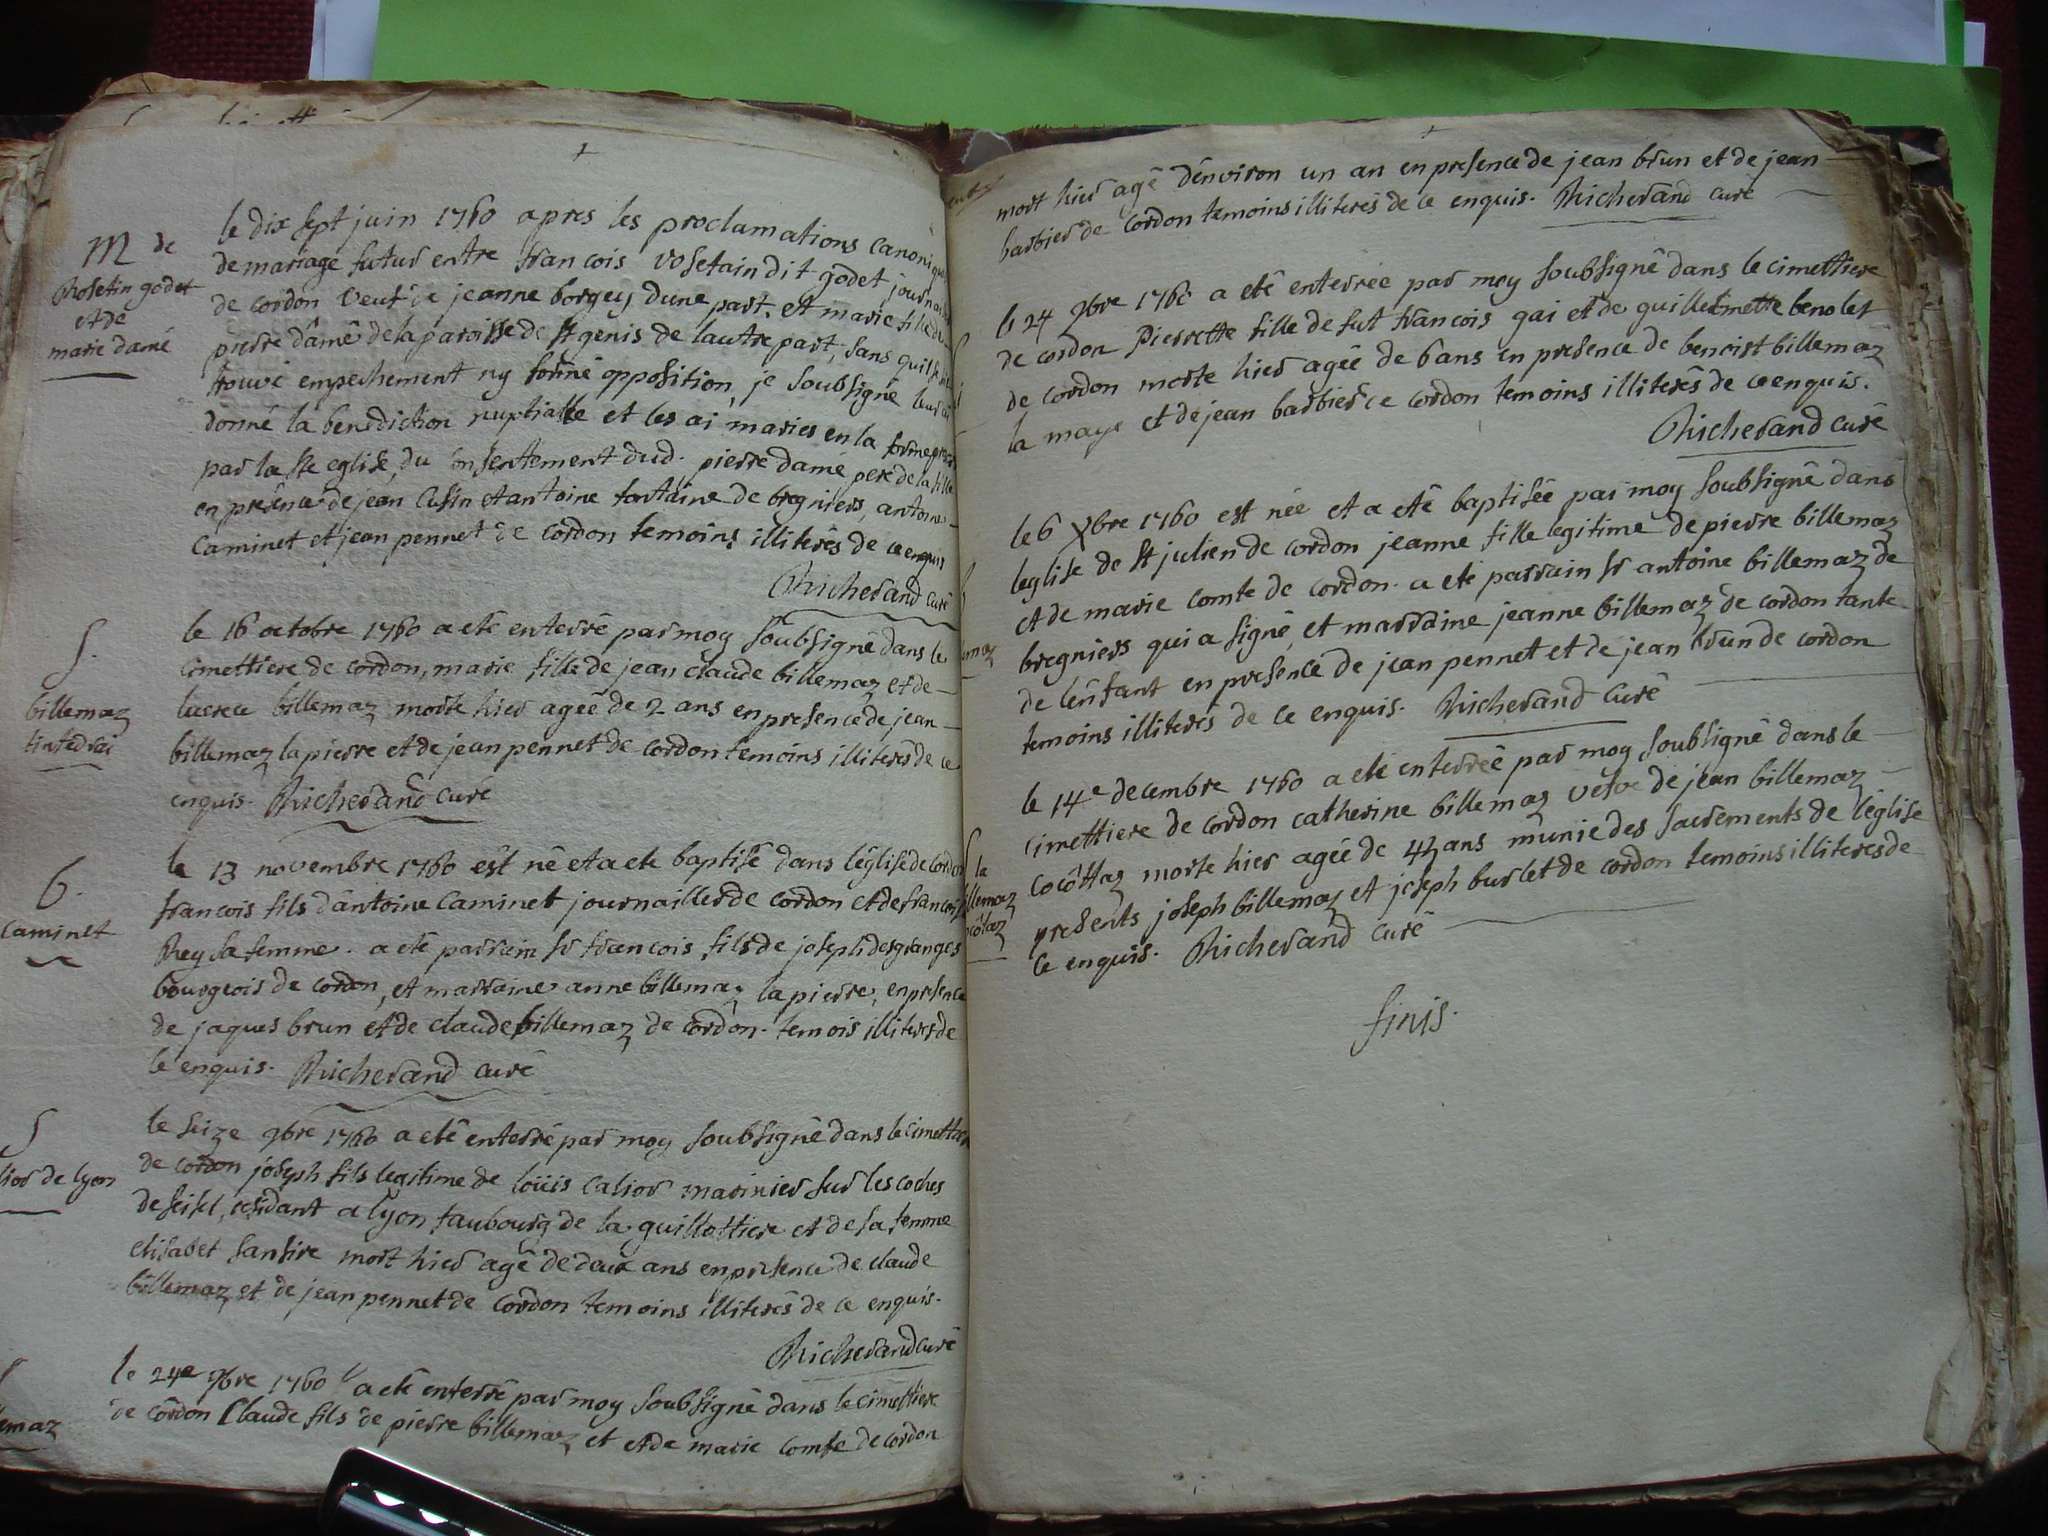 M de
Rosetin godet
et de
marie damé
le dix sept juin 1760 apres les proclamations canoniqu
de mariage futur entre francois rosetain dit godet journal
de cordon veuf de jeanne borgey dune part, et marie fille de
pierre dâmê de la paroisse de st genis de lautre part, sans quil se
trouvé empeshement ny formé opposition, je soubsigné leur ai
donné la benediction nuptialle et les ai mariés en la forme
par la ste eglise, du consentement dud. pierre damé pere de la fille
en présence de jean Cusin et antoine fontaine de bregniers, antoine
Caminet et jean pennet de cordon temoins illiterés de ce enquis
Richerand curé
S.
billemaz
tintedrai
le 16 octobre 1760 a eté enterré par moy soubsigné dans le
cimettiere de cordon, marie fille de jean claude billemaz et de
lucrece billemaz morte hier agée de 2 ans en presence de jean
billemaz la pierre et de jean pennet de cordon temoins illiterés de ce
enquis. Richerand Curé
b.
Caminet
le 13 novembre 1760 est né et a eté baptisé dans léglise de cordon
francois fils dantoine Caminet journailler de cordon et de francois
Rey sa femme. a eté parrain sr francois fils de joseph desgranges
bourgeois de cordon, et marraine anne billemaz la pierre, en presence
de jaques brun et de claude billemaz de cordon. temois illiterés de
ce enquis. Richerand curé
S
lior de lyon
le seize 9bre 1760 a eté enterré par moy soubsigné dans le cimettiere
de cordon joseph fils legitime de loüis Calior marinier sur les coches
de seisel, residant a lyon faubourg de la guillottiere et de sa femme
elisabet sansire mort hier agé de deux ans en presence de claude
billemaz et de jean pennet de cordon temoins illiterés de ce enquis.
Richerand curé
lemaz
le 24e 9bre 1760 a eté enterré par moy soubsigné dans le cimettiere
de cordon Claude fils de pierre billemaz et et de marie comte de cordon
mort hier agé dénviron un an en presence de jean brun et de jean
barbier de cordon temoins illiterés de ce enquis. Richerand curé
le 24 9bre 1760 a eté enterrée par moy soubsigné dans le cimettiere
de cordon Pierrette fille de fut francois gai et de guillermette benolet
de cordon morte hier agée de 6 ans en presence de benoist billemaz
la maye et de jean barbier de cordon temoins illiterés de ce enquis.
Richerand curé
le 6 Xbre 1760 est née et a eté baptisée par moy soubsigné dans
leglise de st julien de cordon jeanne fille legitime de pierre billemaz
et de marie comte de cordon. a eté parrain sr antoine billemaz de
bregniers qui a signé, et marraine jeanne billemaz de cordon tante
de lénfant en presénce de jean pennet et de jean brun de cordon
temoins illiterés de ce enquis. Richerand Curé
la
llemaz
cólaz
le 14e decembre 1760 a eté enterrée par moy soubsigné dans le
cimettiere de cordon catherine billemaz veuve de jean billemaz
cocôttaz morte hier agée de 42 ans munie des sacrements de léglise
presents joseph billemaz et joseph burlet de cordon temoins illiterés de
ce enquis. Richerand Curé
finis.